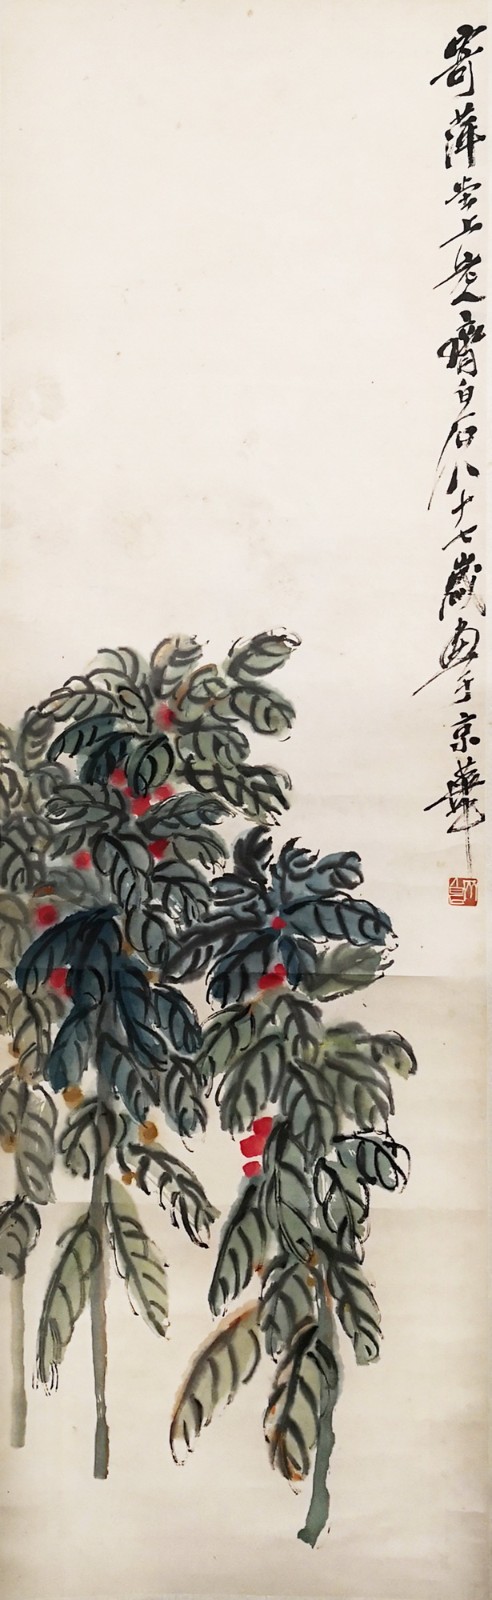 寄萍堂上老人齊白石八十七歲畫于京華